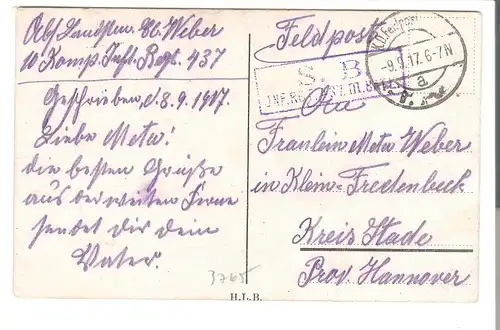 Abs. Landstm. Weber
10 Komp. Inft. Regt. 437
Geschrieben d. 8.9.1917.
Liebe Meta!
die besten Grüße
aus der weiten Ferne
sendet dir dein
Vater.
3765
Feldpost
K.D. Feldpost
-9.9.17. 6-7N
a
S. B.
An
Fraulein Meta Weber
in Klein-Fredenbeck
Kreis Stade
Prov. Hannover
H.L.B.